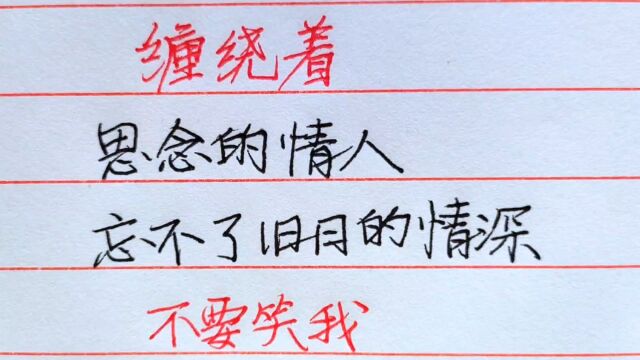 缠绕着
思念的情人
忘不了旧日的情深
不要笑我